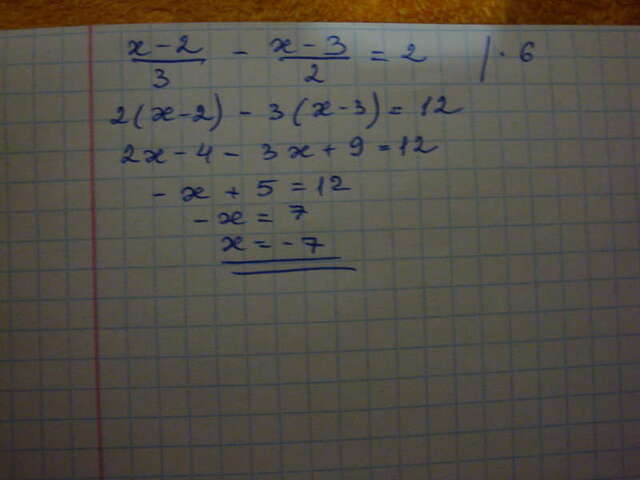 x-2/3 - x-3/2 = 2 | · 6
2(x-2) - 3(x-3) = 12
2x - 4 - 3x + 9 = 12
- x + 5 = 12
- x = 7
x = - 7